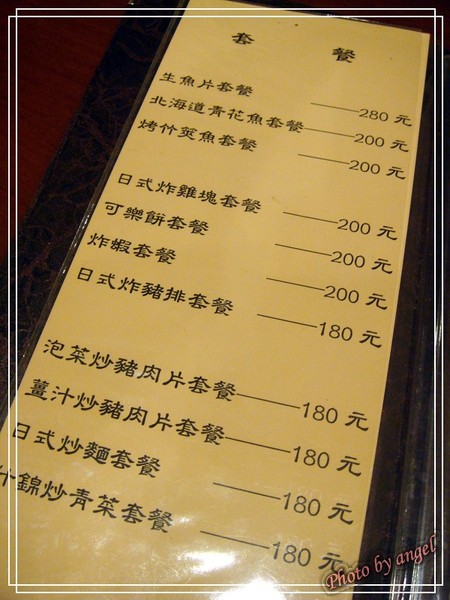 套 餐
生魚片套餐——280 元
北海道青花魚套餐——200 元
烤竹筴魚套餐——200 元
日式炸雞塊套餐——200 元
可樂餅套餐——200 元
炸蝦套餐——200 元
日式炸豬排套餐——180 元
泡菜炒豬肉片套餐——180 元
薑汁炒豬肉片套餐——180 元
日式炒麵套餐——180 元
什錦炒青菜套餐——180 元
Photo by angel